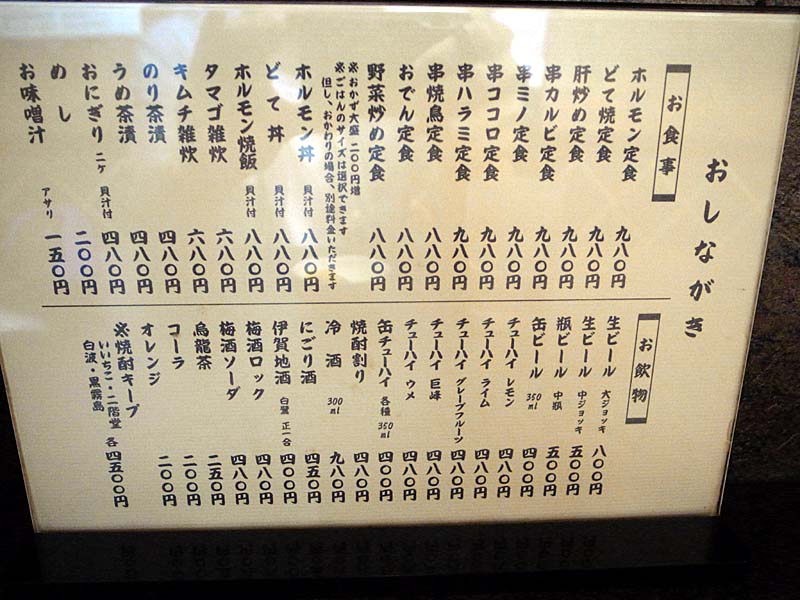 おしながき
お食事
ホルモン定食 九八〇円
どて焼定食 九八〇円
肝炒め定食 九八〇円
串カルビ定食 九八〇円
串ミノ定食 九八〇円
串ココロ定食 九八〇円
串ハラミ定食 九八〇円
串焼鳥定食 八八〇円
おでん定食 八八〇円
野菜炒め定食 八八〇円
※おかず大盛 二〇〇円増
※ごはんのサイズは選択できます
但し、おかわりの場合、別途料金いただきます
ホルモン丼 貝汁付 八八〇円
どて丼 貝汁付 八八〇円
ホルモン焼飯 貝汁付 八八〇円
タマゴ雑炊 六八〇円
キムチ雑炊 六八〇円
のり茶漬 四八〇円
うめ茶漬 四八〇円
おにぎり 二ケ 貝汁付 四八〇円
めし 二〇〇円
お味噌汁 アサリ 一五〇円
お飲物
生ビール 大ジョッキ 八〇〇円
生ビール 中ジョッキ 五〇〇円
瓶ビール 中瓶 五〇〇円
缶ビール 350ml 四〇〇円
チューハイ レモン 四八〇円
チューハイ ライム 四八〇円
チューハイ グレープフルーツ 四八〇円
チューハイ 巨峰 四八〇円
チューハイ ウメ 四八〇円
缶チューハイ 各種 350ml 四〇〇円
焼酎割り 四八〇円
冷酒 300ml 九八〇円
にごり酒 四五〇円
伊賀地酒 白鷺 正一合 四〇〇円
梅酒ロック 四八〇円
梅酒ソーダ 四八〇円
烏龍茶 二五〇円
コーラ 二〇〇円
オレンジ 二〇〇円
※焼酎キープ
いいちこ・二階堂 各 四五〇〇円
白波・黒霧島